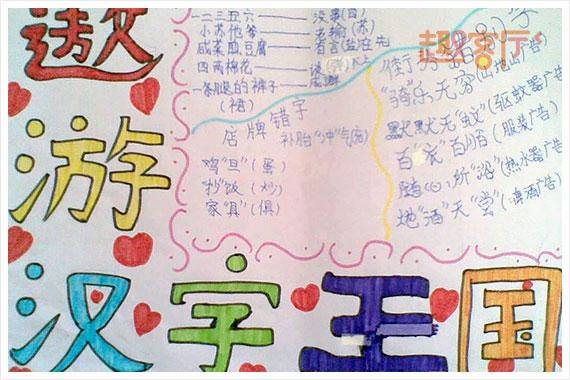 遨
游
汉字王国
一二三五六——没事(四)
小苏他爷——老输(苏)
咸菜煎豆腐——有言(盐)在先
四两棉花——谈
一条腿的裤子——
(裙)
店牌错字
补胎"冲"气(充)
鸡"旦"(蛋)
抄"饭"(炒)
家"具"(俱)
街
"骑"乐无穷(山地车广告)
默默无"蚊"(驱蚊器广告)
百"衣"百顺(服装广告)
随心所"浴"(热水器广告)
地"酒"天"堂"(啤酒广告)
趣客厅